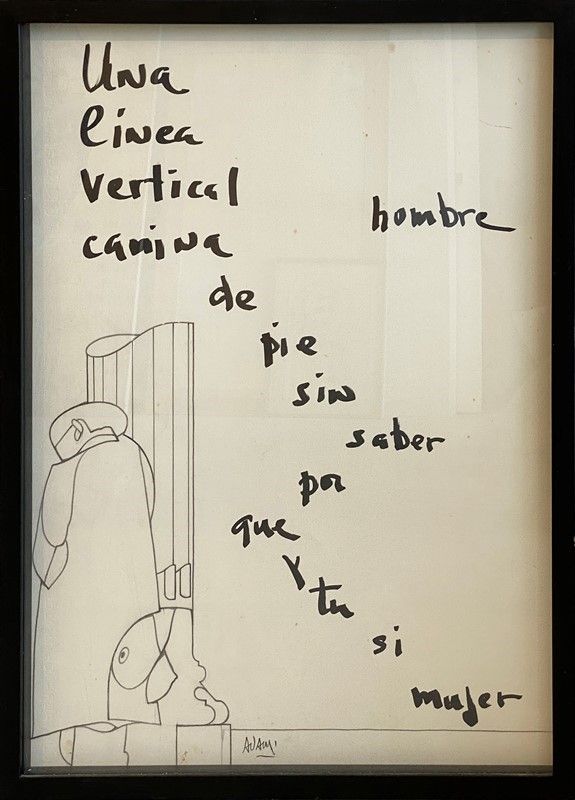 Una
línea
vertical
camina
hombre
de
pie
sin
saber
por
que
y
tu
si
mujer
ADAMI